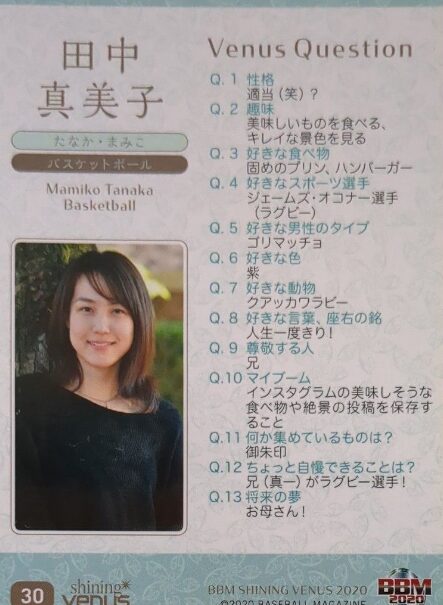 田中
真美子
たなか・まみこ
バスケットボール
Mamiko Tanaka
Basketball
Venus Question
Q. 1 性格
適当（笑）？
Q. 2 趣味
美味しいものを食べる、
キレイな景色を見る
Q. 3 好きな食べ物
固めのプリン、ハンバーガー
Q. 4 好きなスポーツ選手
ジェームズ・オコナー選手
（ラグビー）
Q. 5 好きな男性のタイプ
ゴリマッチョ
Q. 6 好きな色
紫
Q. 7 好きな動物
クアッカワラビー
Q. 8 好きな言葉、座右の銘
人生一度きり！
Q. 9 尊敬する人
兄
Q.10 マイブーム
インスタグラムの美味しそうな
食べ物や絶景の投稿を保存す
ること
Q.11 何か集めているものは？
御朱印
Q.12 ちょっと自慢できることは？
兄（真一）がラグビー選手！
Q.13 将来の夢
お母さん！
30
shining
venus
BBM SHINING VENUS 2020
©2020 BASEBALL MAGAZINE
BBM
2020